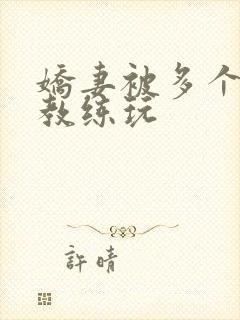 嬌妻被多个
教练玩
許晴